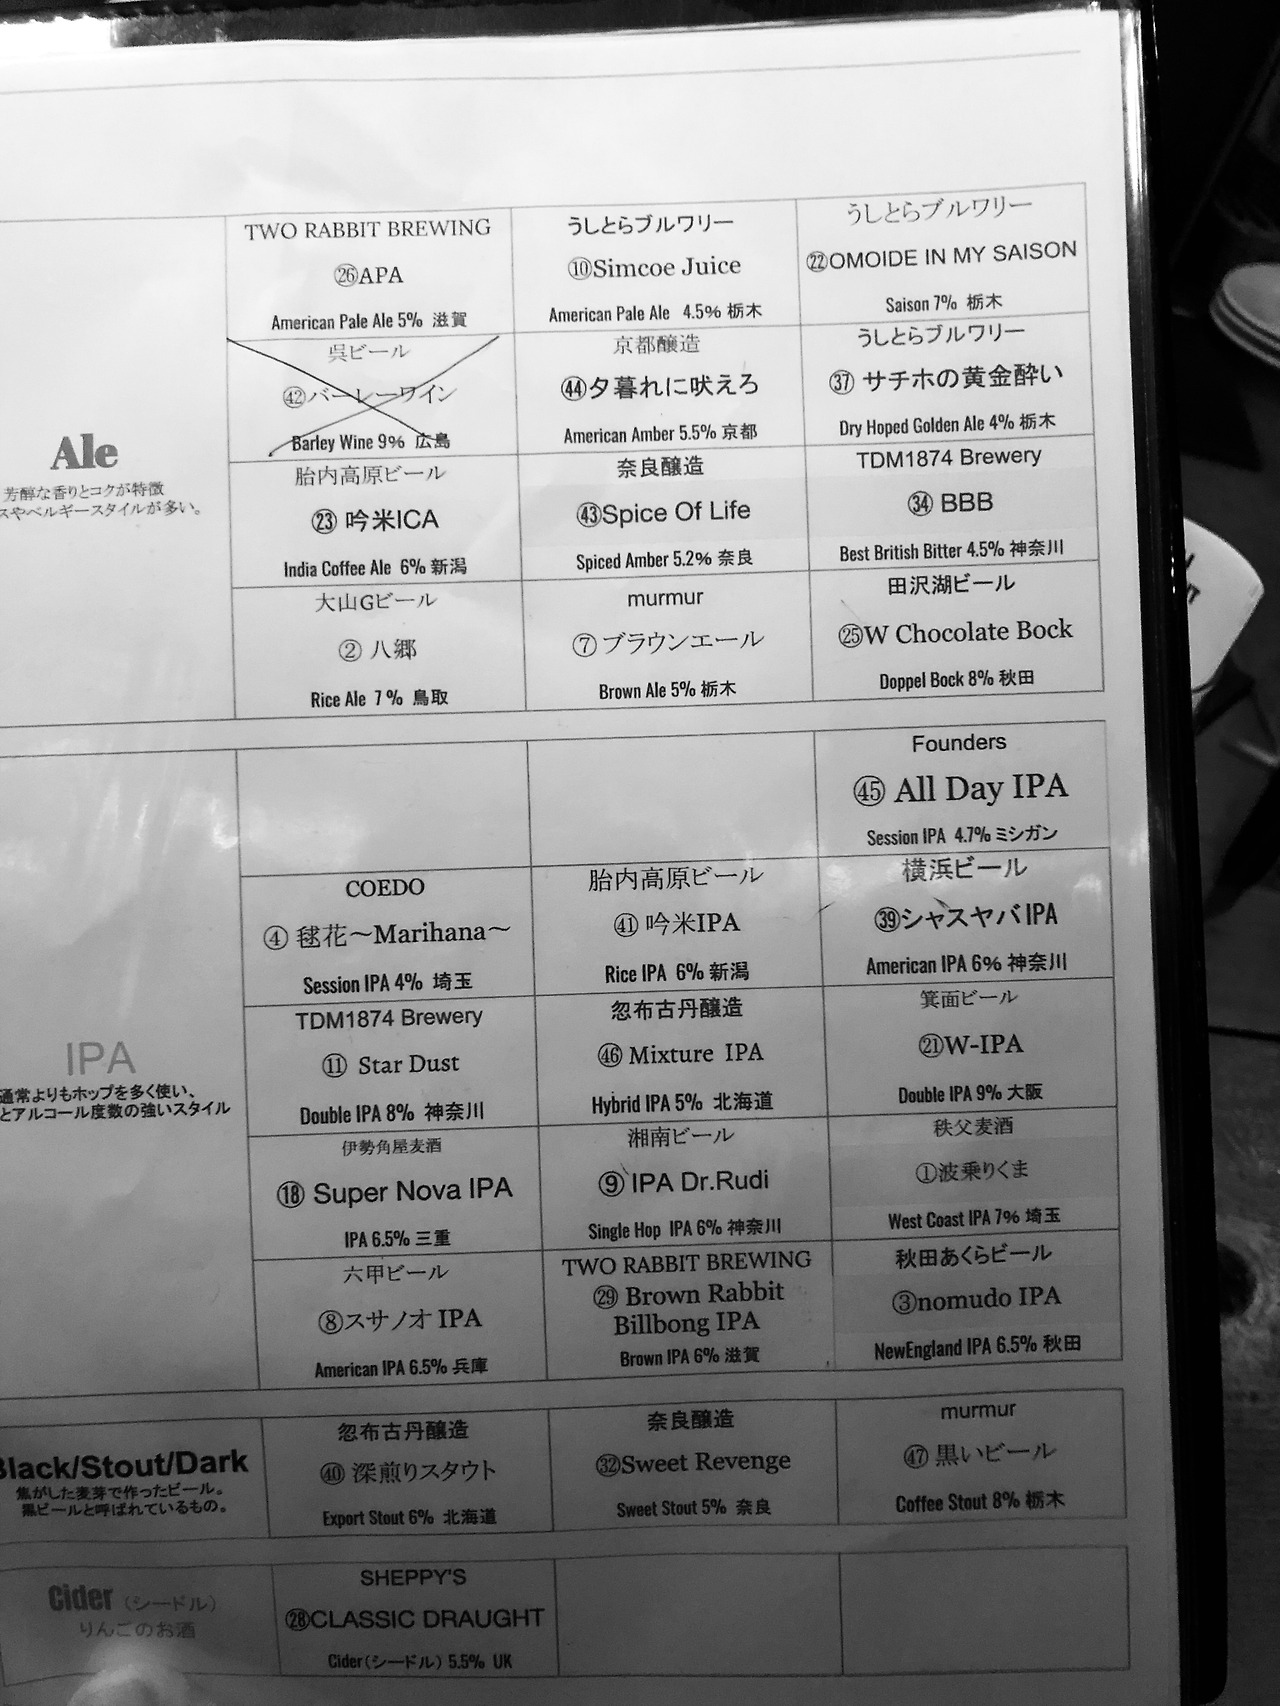 TWO RABBIT BREWING
㉖APA
American Pale Ale 5% 滋賀
うしとらブルワリー
⑩Simcoe Juice
American Pale Ale 4.5% 栃木
うしとらブルワリー
㉒OMOIDE IN MY SAISON
Saison 7% 栃木
Ale
芳醇な香りとコクが特徴
スやベルギースタイルが多い。
呉ビール
㊷バーレーワイン
Barley Wine 9% 広島
京都醸造
㊹夕暮れに吠えろ
American Amber 5.5% 京都
うしとらブルワリー
㊲ サチホの黄金酔い
Dry Hoped Golden Ale 4% 栃木
胎内高原ビール
㉓ 吟米ICA
India Coffee Ale 6% 新潟
奈良醸造
㊸Spice Of Life
Spiced Amber 5.2% 奈良
TDM1874 Brewery
㉞ BBB
Best British Bitter 4.5% 神奈川
大山Gビール
② 八郷
Rice Ale 7 % 鳥取
murmur
⑦ ブラウンエール
Brown Ale 5% 栃木
田沢湖ビール
㉕W Chocolate Bock
Doppel Bock 8% 秋田
IPA
通常よりもホップを多く使い、
とアルコール度数の強いスタイル
Founders
㊺ All Day IPA
Session IPA 4.7% ミシガン
COEDO
④ 毬花～Marihana～
Session IPA 4% 埼玉
胎内高原ビール
㊶ 吟米IPA
Rice IPA 6% 新潟
横浜ビール
㊴シャスヤバ IPA
American IPA 6% 神奈川
TDM1874 Brewery
⑪ Star Dust
Double IPA 8% 神奈川
忽布古丹醸造
㊻ Mixture IPA
Hybrid IPA 5% 北海道
箕面ビール
㉑W-IPA
Double IPA 9% 大阪
伊勢角屋麦酒
⑱ Super Nova IPA
IPA 6.5% 三重
湘南ビール
⑨ IPA Dr.Rudi
Single Hop IPA 6% 神奈川
秩父麦酒
①波乗りくま
West Coast IPA 7% 埼玉
六甲ビール
⑧スサノオ IPA
American IPA 6.5% 兵庫
TWO RABBIT BREWING
㉙ Brown Rabbit
Billbong IPA
Brown IPA 6% 滋賀
秋田あくらビール
③nomudo IPA
NewEngland IPA 6.5% 秋田
Black/Stout/Dark
焦がした麦芽で作ったビール。
黒ビールと呼ばれているもの。
忽布古丹醸造
㊵ 深煎りスタウト
Export Stout 6% 北海道
奈良醸造
㉜Sweet Revenge
Sweet Stout 5% 奈良
murmur
㊼ 黒いビール
Coffee Stout 8% 栃木
Cider（シードル）
りんごのお酒
SHEPPY'S
㉘CLASSIC DRAUGHT
Cider（シードル）5.5% UK